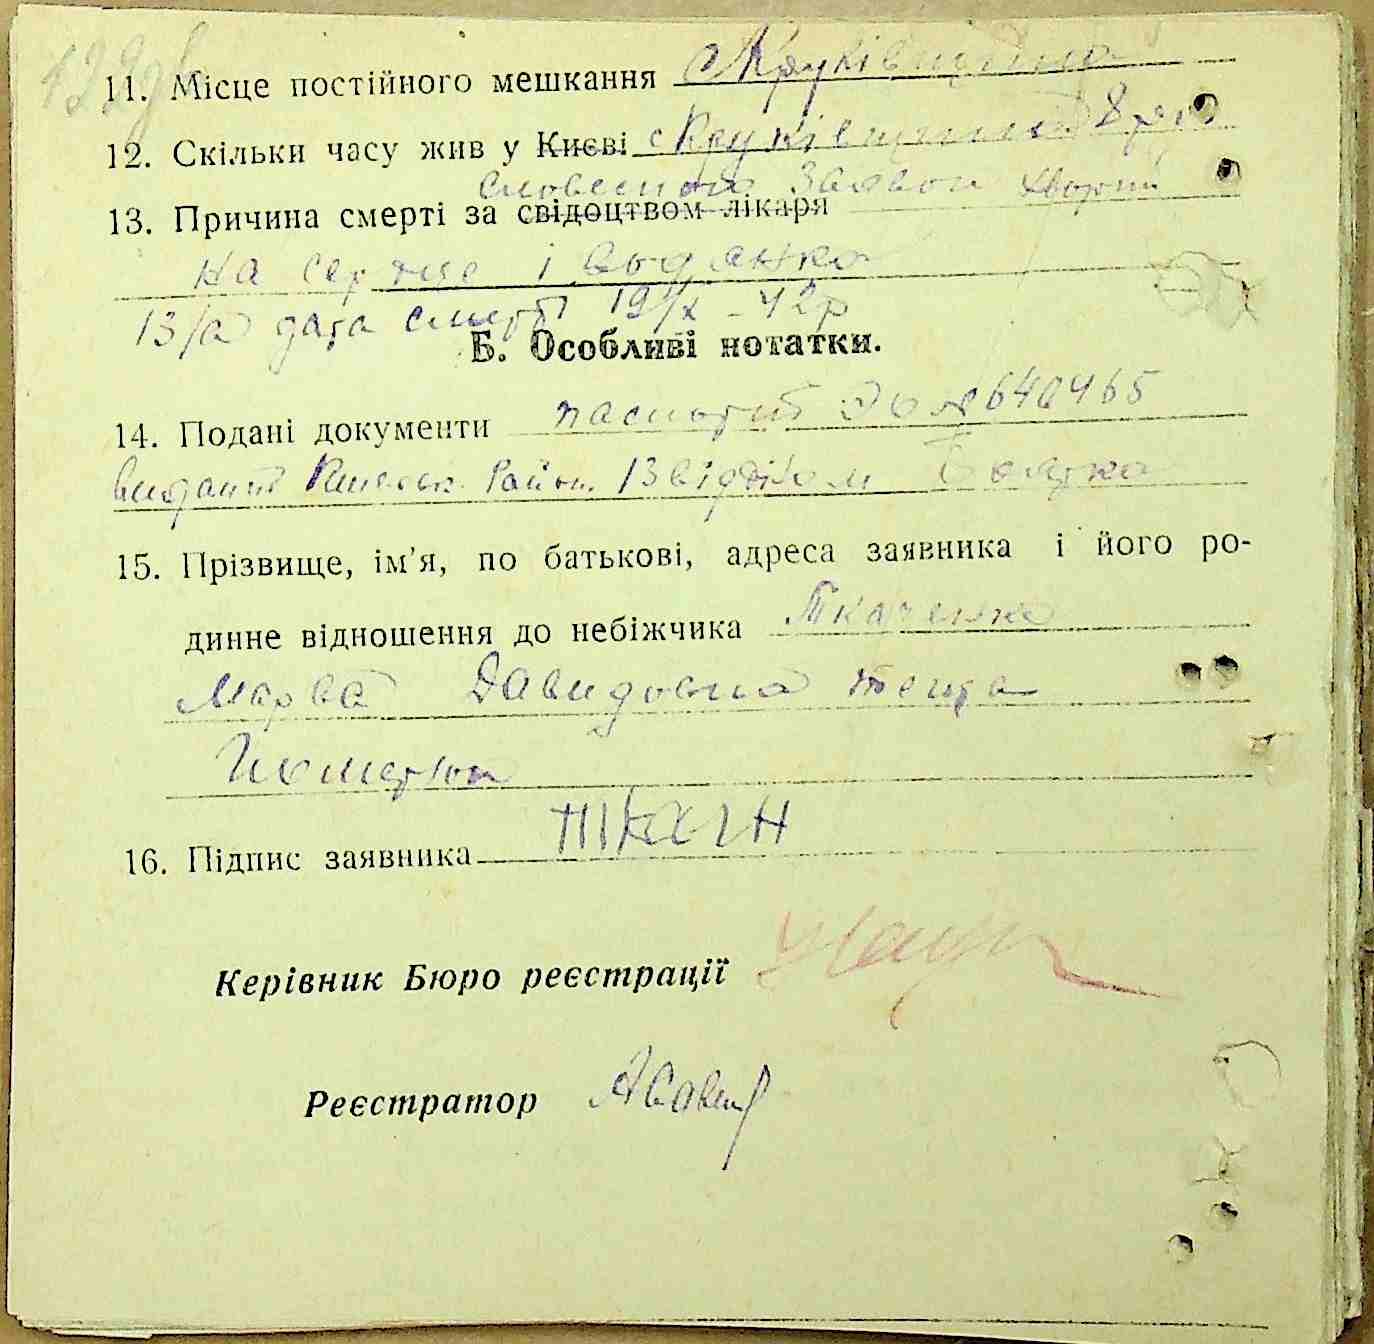 122зв
11. Місце постійного мешкання с Крюківщина
12. Скільки часу жив у Києві с Крюківщина 8 рок
словесною Заявою хворий
13. Причина смерті за свідоцтвом лікаря
на серце і водянка
13/а дата смерті 19/X - 42р
Б. Особливі нотатки.
14. Подані документи паспорт № 640465
виданий Район. 13 відділом Боярка
15. Прізвище, ім’я, по батькові, адреса заявника і його ро-
динне відношення до небіжчика Ткаченко
Марва Давидовна теща
Померлої
16. Підпис заявника Ткачн
Керівник Бюро реєстрації
Реєстратор